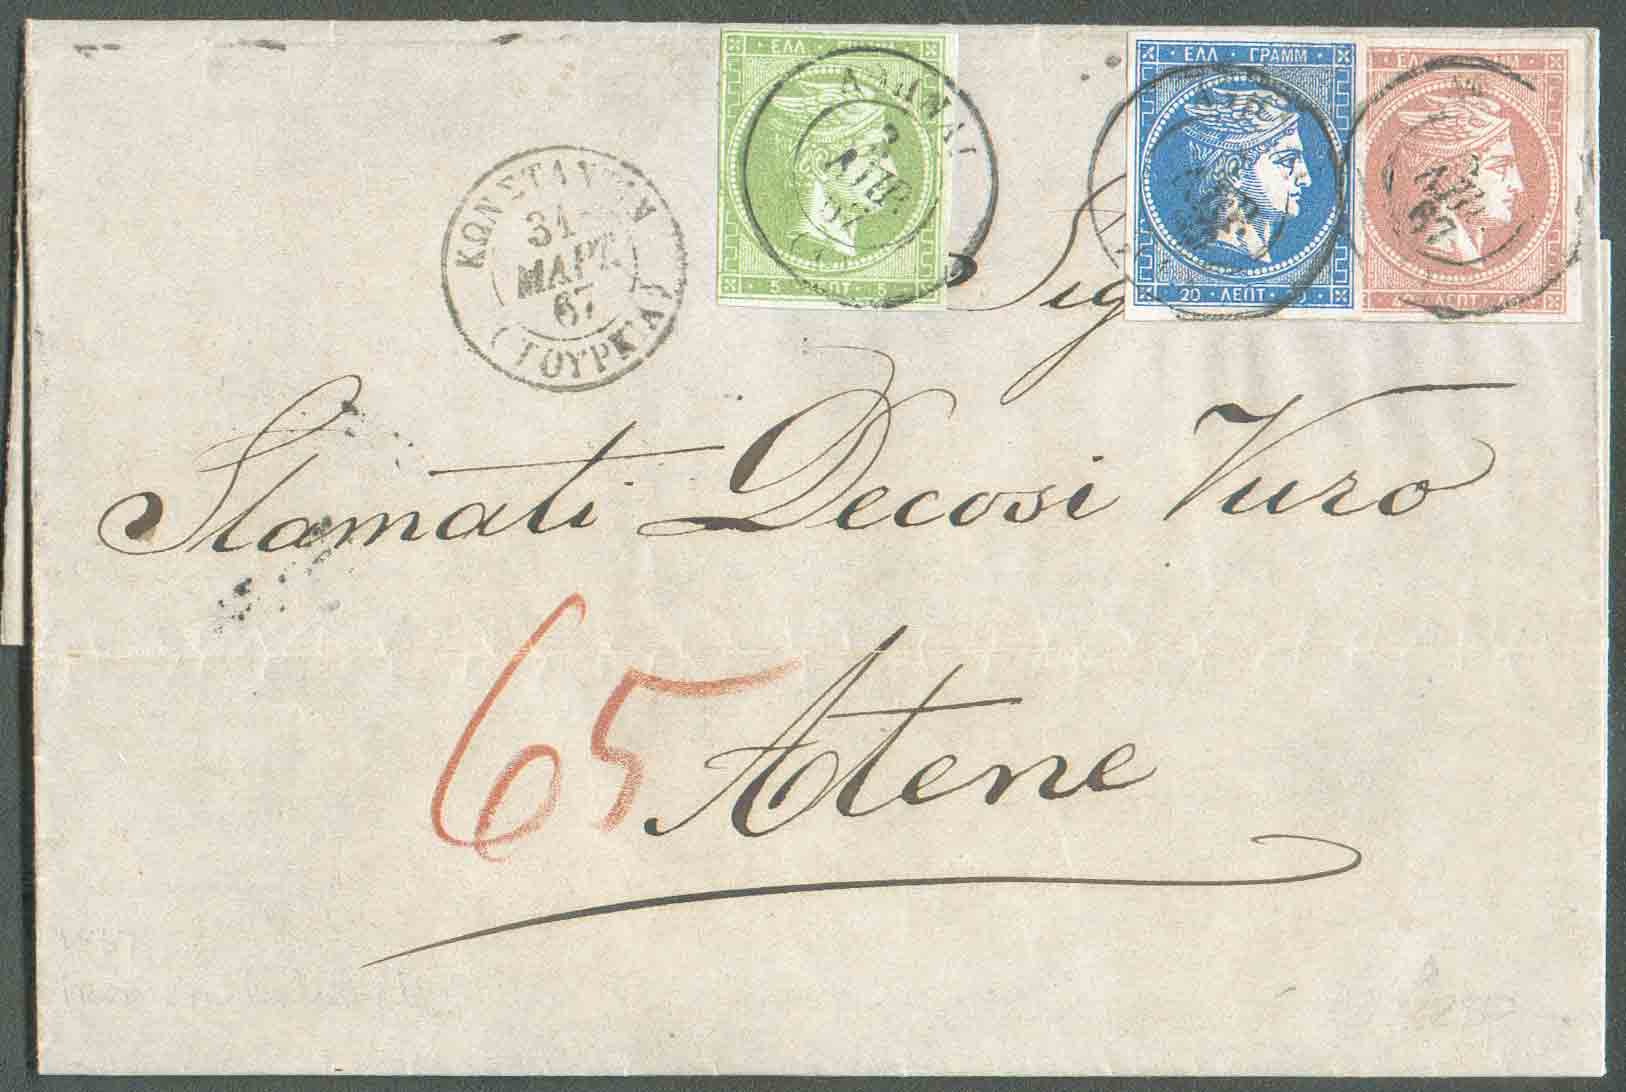 ΕΛΛ ΓΡΑΜΜ
5 ΛΕΠΤ 5
ΑΘΗΝΑΙ
2
ΑΠΡ
67
ΕΛΛ · ΓΡΑΜΜ
20 · ΛΕΠΤ
ΑΠΡ
67
ΛΕΠΤ
ΚΩΝΣΤΑΝΤΙΝ
31
ΜΑΡΤ
67
(ΤΟΥΡΚΙΑ)
Sig
Stamati Decosi Vuro
65
Atene